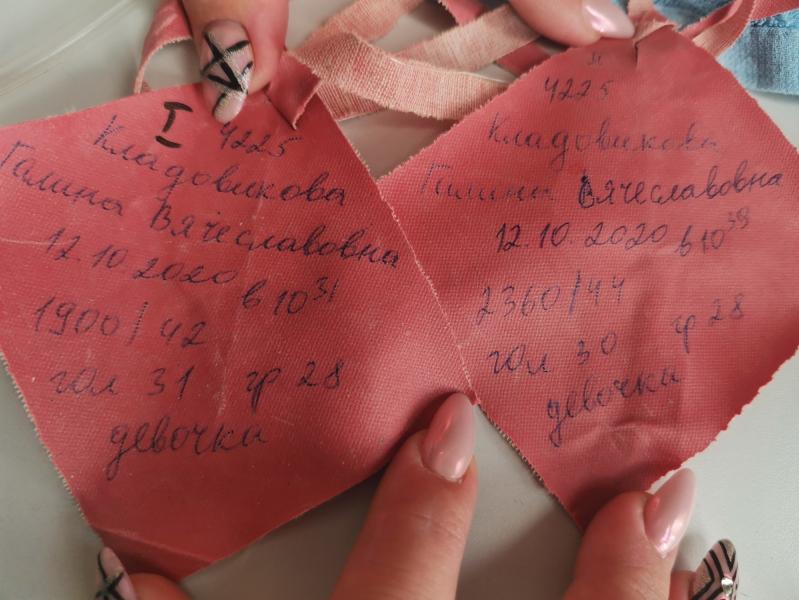 I 4225
Кладовикова
Галина Вячеславовна
12.10.2020 в 10 31
1900/42
гол 31 гр 28
девочка
II
4225
Кладовикова
Галина Вячеславовна
12.10.2020 в 10 38
2360/44
гол 30 гр 28
девочка